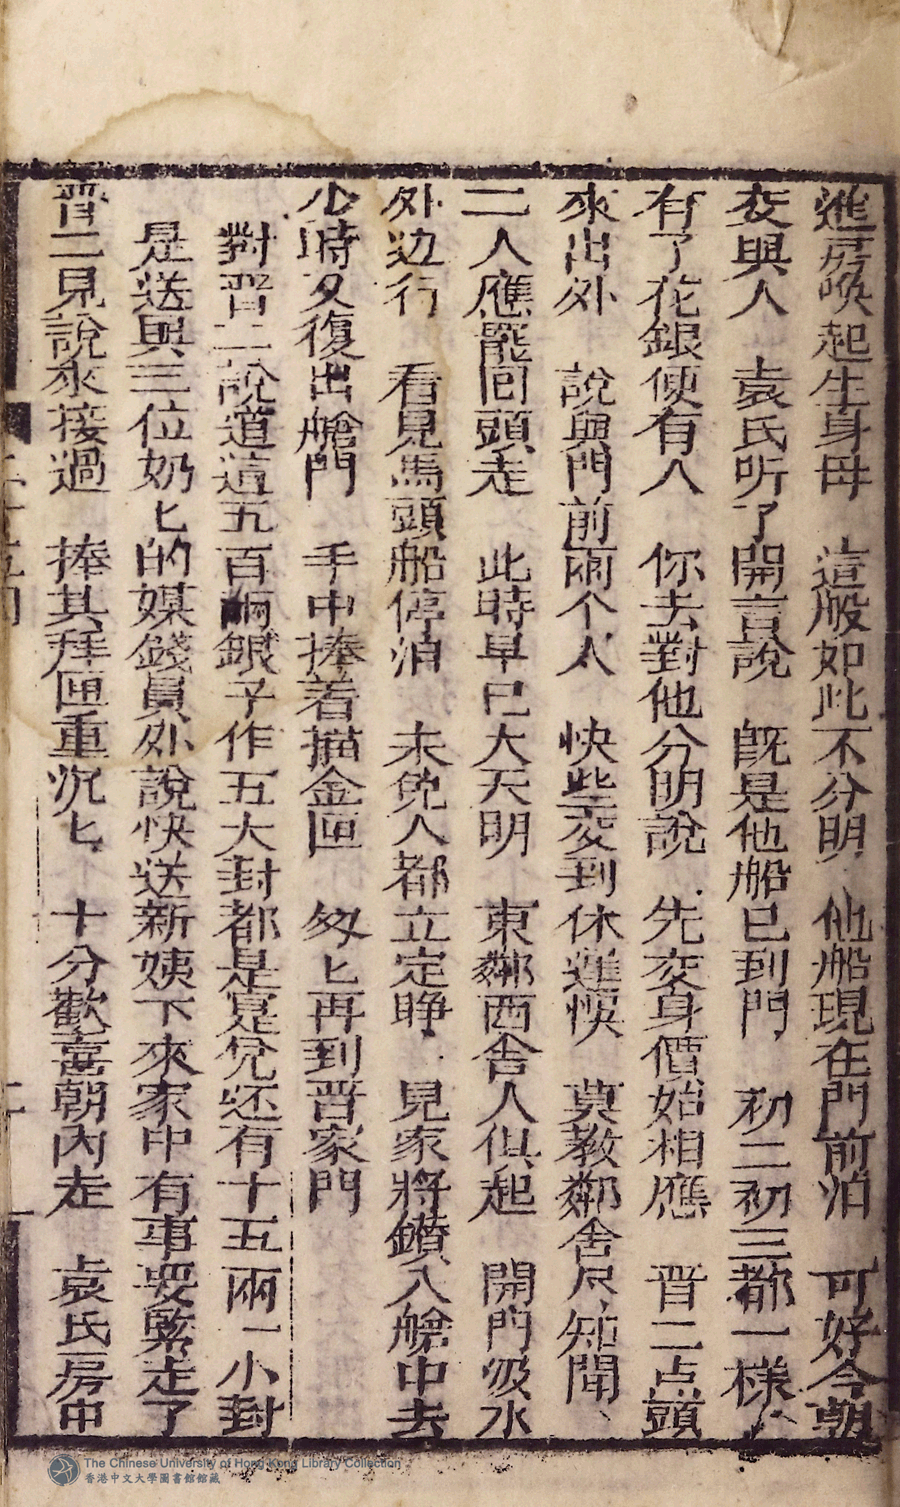 進房喚起生身母　這般如此不分明　他船現在門前泊　可好今朝
交與人　袁氏听了開言說　旣是他船已到門　初二初三都一樣
有了花銀便有人　你去對他分明說　先交身價始相應　晋二点頭
來出外　說與門前兩个人　快些交到休遲悞　莫教鄰舍尽知聞
二人應罷回頭走　此時早已大天明　東鄰西舍人俱起　開門汲水
外边行　看見馬頭船停泊　未免人都立定睁　見家將鑽入艙中去
少時又復出艙門　手中捧着描金匣　匆匕再到晋家門
對晋二說道這五百兩銀子作五大封都是足兌还有十五兩一小封
是送與三位奶匕的媒錢員外說快送新姨下來家中有事要緊走了
晋二見說來接過　捧其拜匣重沉匕　十分歡喜朝內走　袁氏房中
The Chinese University of Hong Kong Library Collection
香港中文大學圖書館館藏